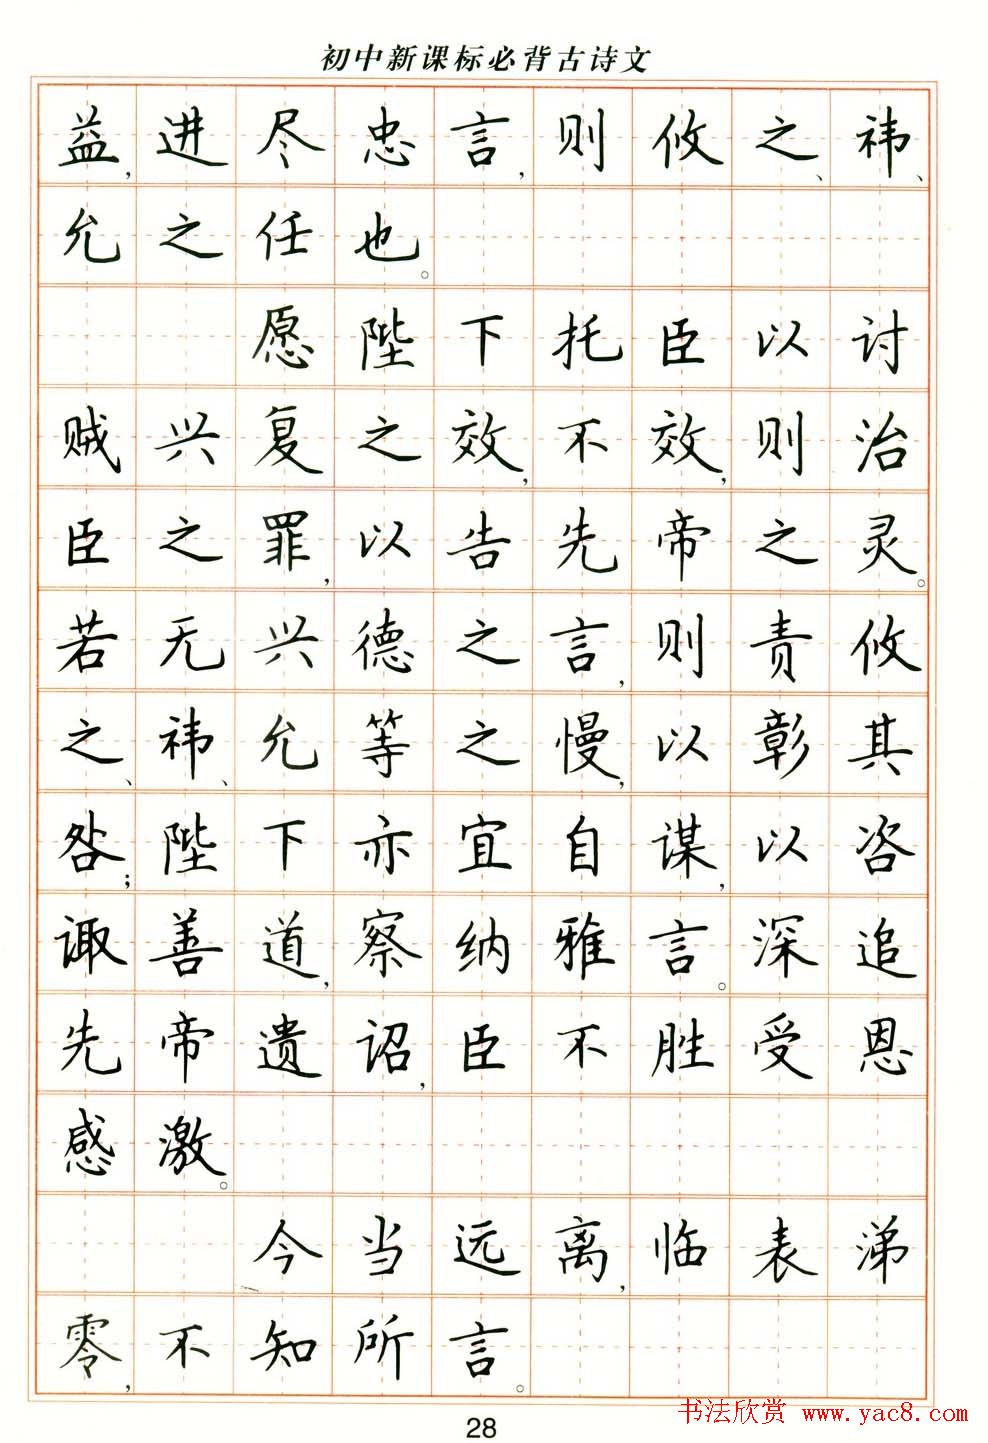 初中新课标必背古诗文
益，进尽忠言，则攸之、祎、
允之任也。
愿陛下托臣以讨
贼兴复之效，不效，则治
臣之罪，以告先帝之灵。
若无兴德之言，则责攸
之、祎、允等之慢，以彰其
咎；陛下亦宜自谋，以咨
诹善道，察纳雅言。深追
先帝遗诏，臣不胜受恩
感激。
今当远离，临表涕
零，不知所言。
28
书法欣赏 www.yac8.com